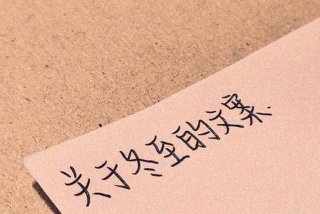 关于冬至的文案.